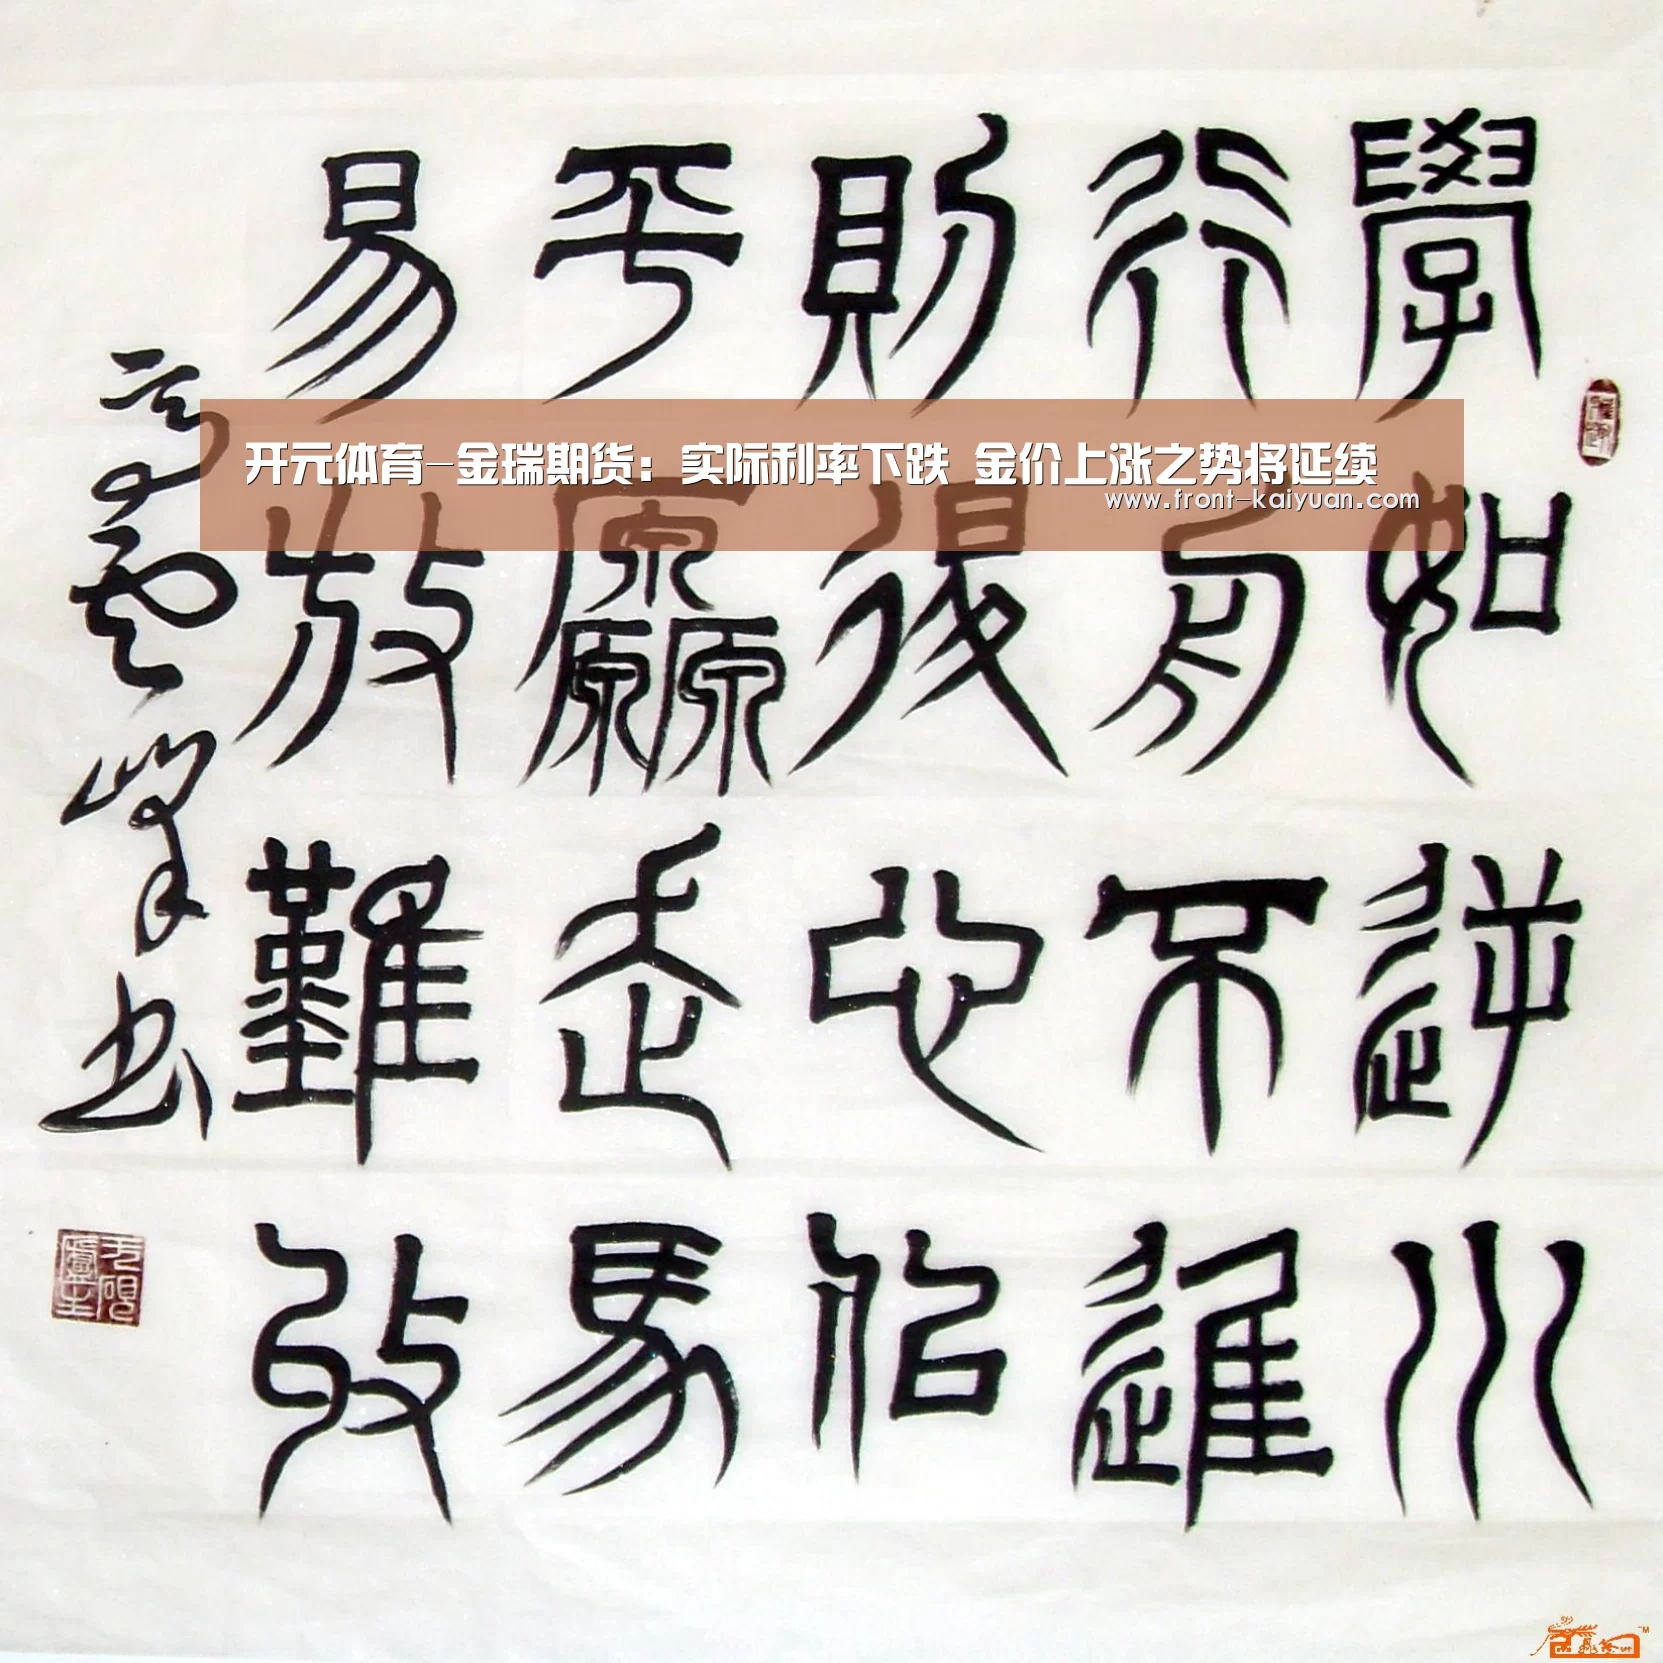 開元体育-金瑞期货：实际利率下跌 金价上涨之势将延续
www.front-kaiyuan.com
學如逆水
行舟不進
則退心似
平厵走馬
易放難收
高雲峯书